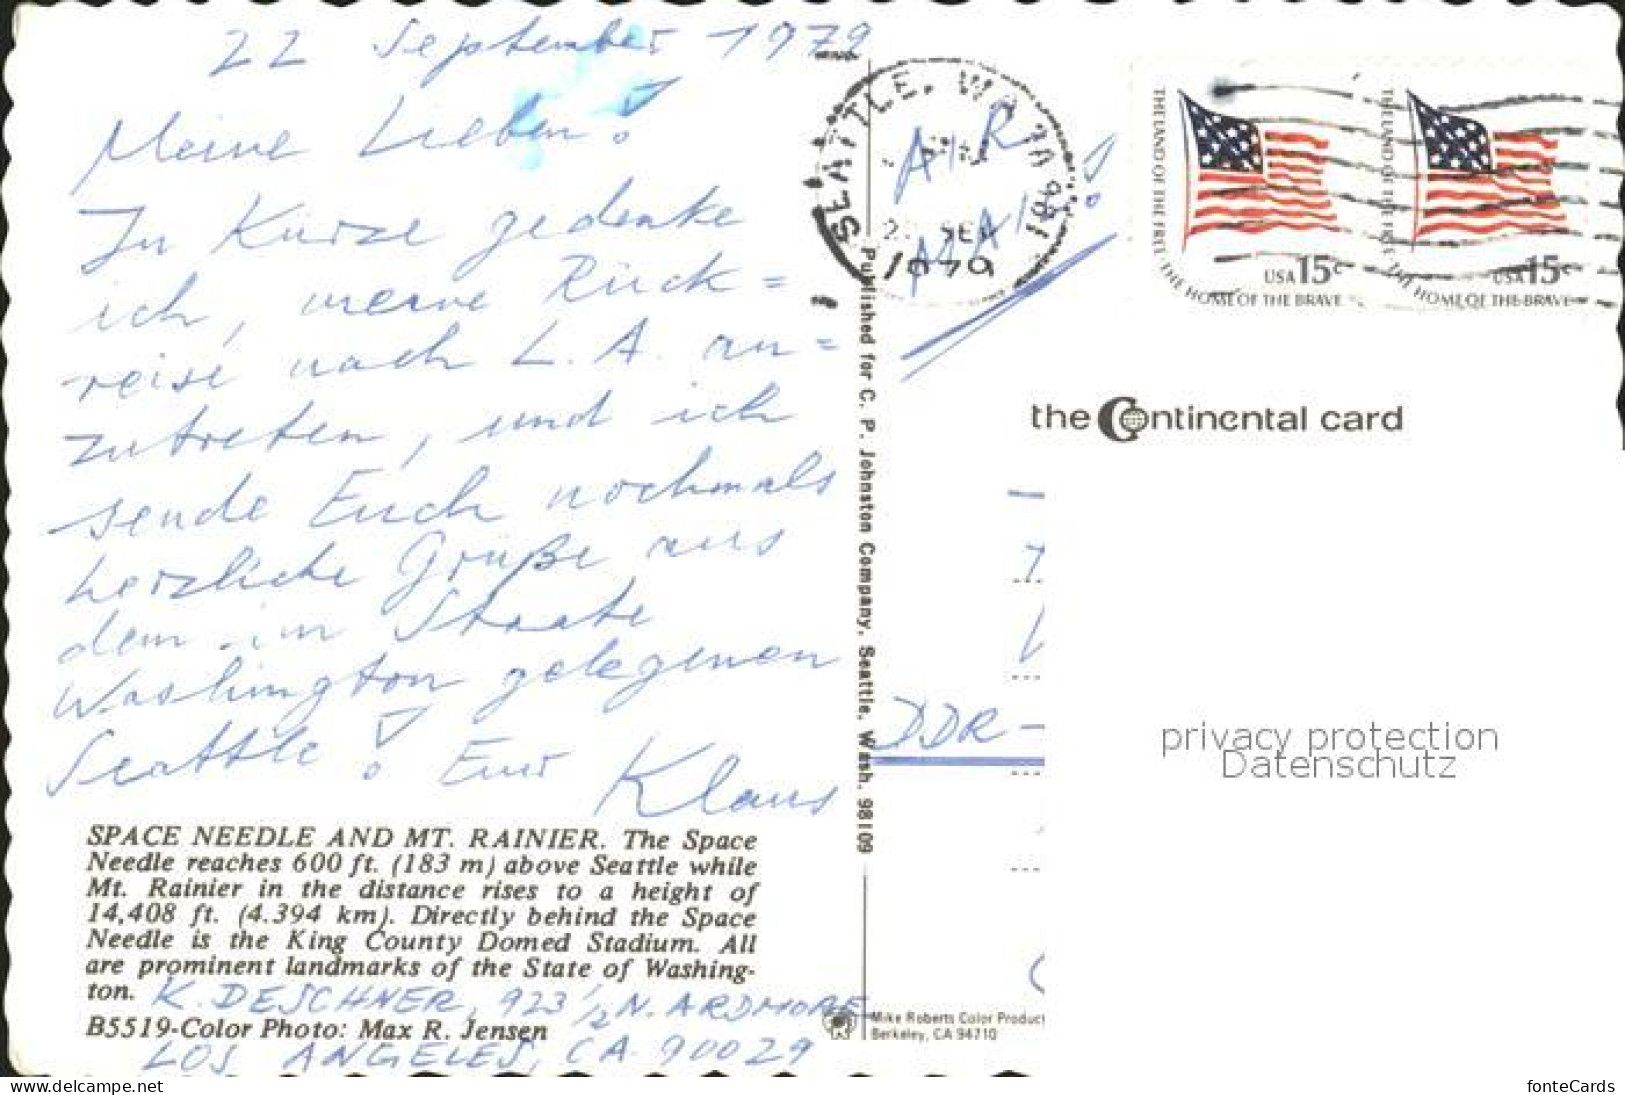 22 September 1979
Meine Lieben!
In Kürze gedenke
ich, meine Rück=
reise nach L. A. an=
zutreten, und ich
sende Euch nochmals
herzliche Grüße aus
dem im Staate
Washington gelegenen
Seattle! Euer Klaus
SPACE NEEDLE AND MT. RAINIER. The Space
Needle reaches 600 ft. (183 m) above Seattle while
Mt. Rainier in the distance rises to a height of
14,408 ft. (4.394 km). Directly behind the Space
Needle is the King County Domed Stadium. All
are prominent landmarks of the State of Washing-
ton.
K. DESCHNER, 923 1/2 N. ARDMORE
B5519-Color Photo: Max R. Jensen
LOS ANGELES, CA. 90029
Published for C. P. Johnston Company, Seattle, Wash. 98109
SEATTLE, WA 981
SEP
1979
AIR
MAIL!
THE LAND OF THE FREE THE HOME OF THE BRAVE
USA 15c
THE LAND OF THE FREE THE HOME OF THE BRAVE
USA 15c
the Continental card
DDR-
privacy protection
Datenschutz
Mike Roberts Color Product
Berkeley, CA 94710
www.delcampe.net
fonteCards